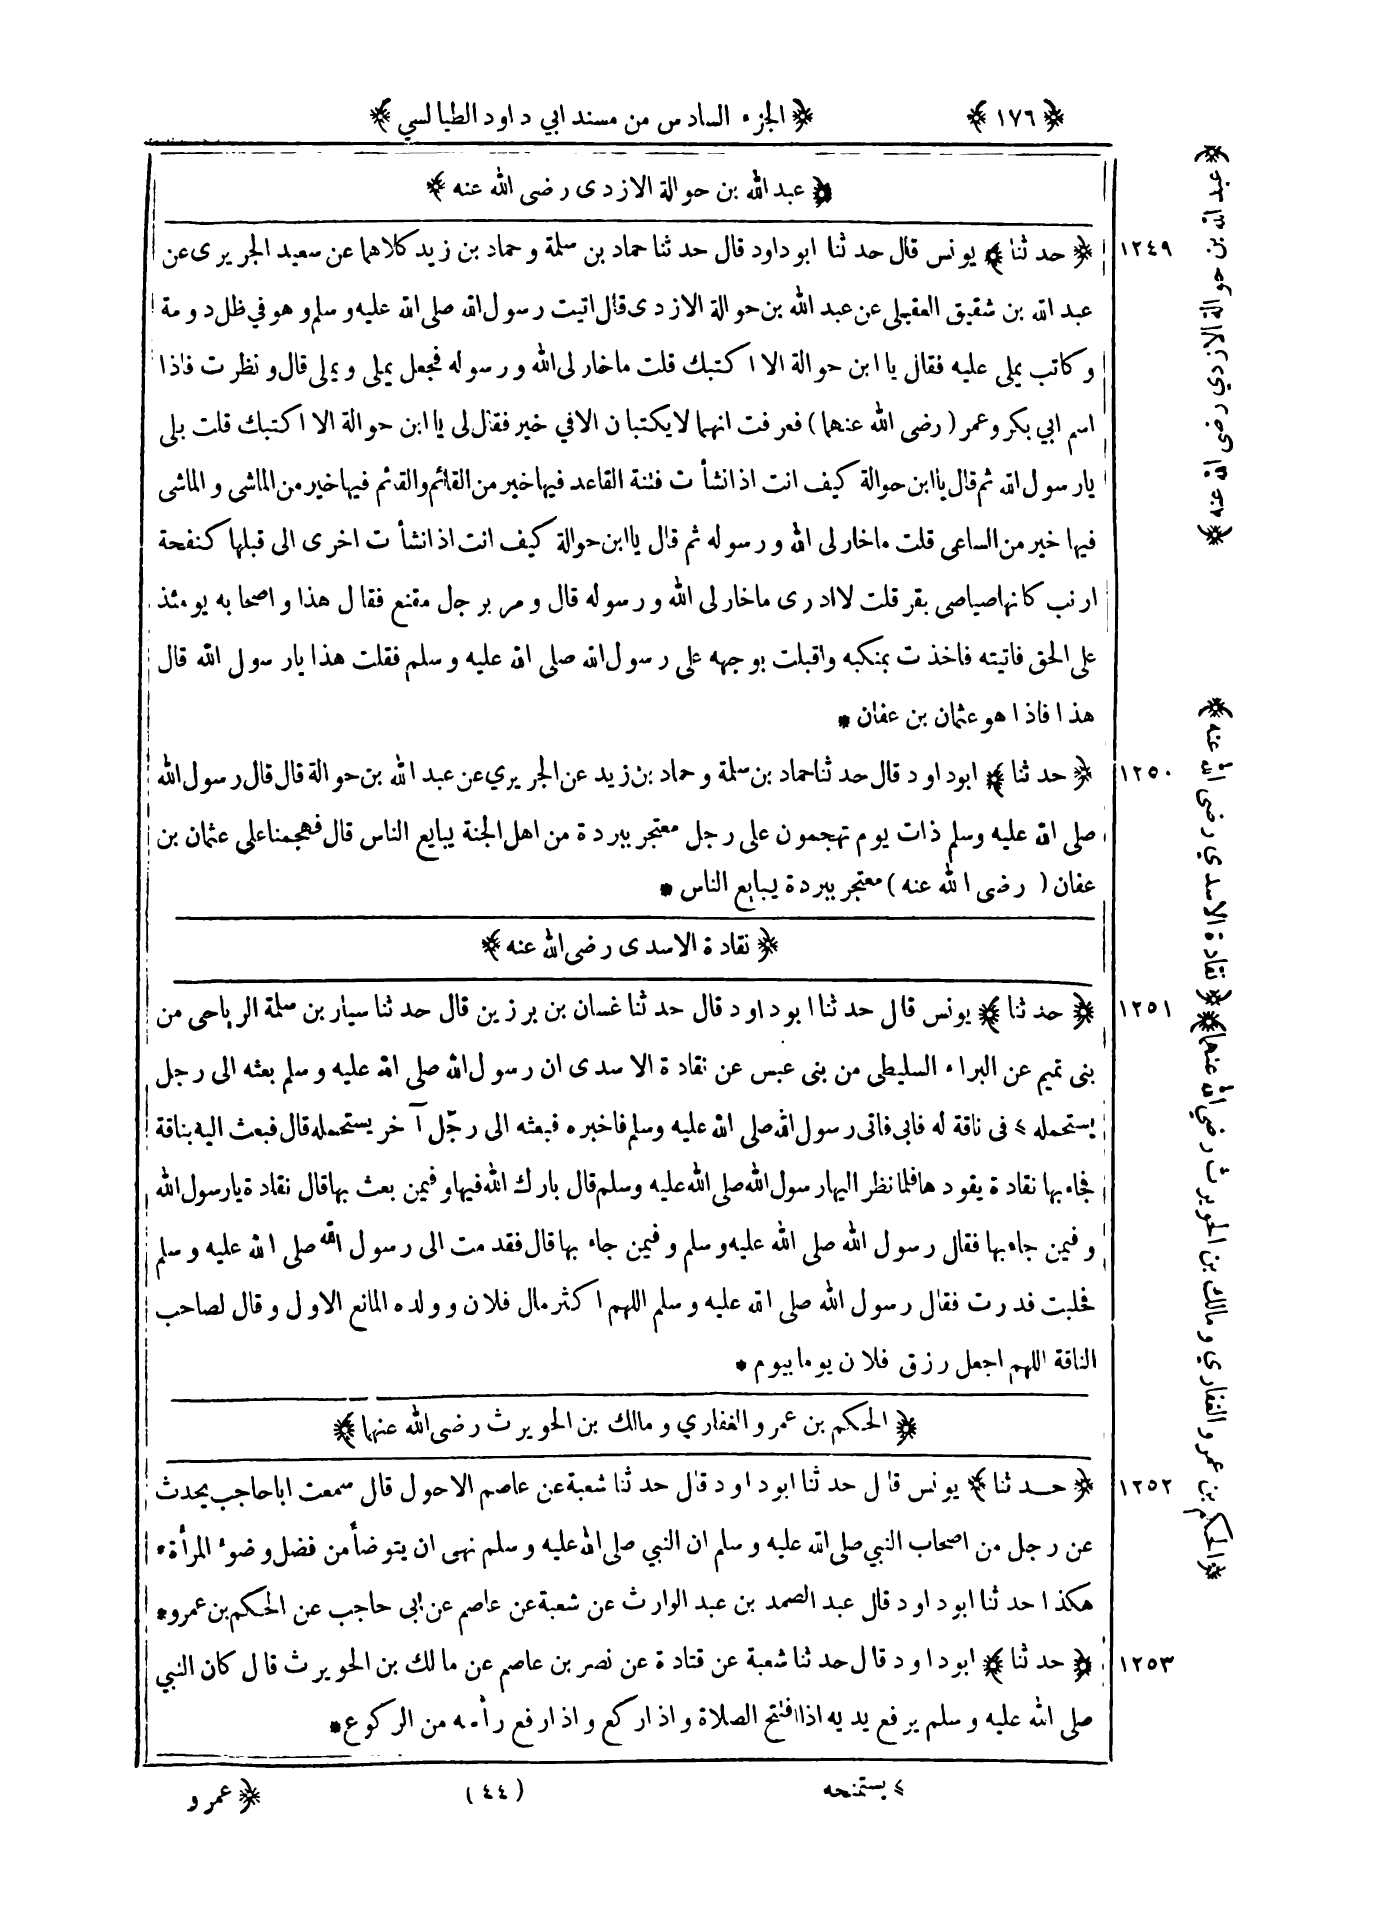 ﴿ ١٧٦ ﴾ ﴿ الجزء السادس من مسند ابي داود الطيالسي ﴾
﴿ عبد الله بن حوالة الازدى رضى الله عنه ﴾
١٢٤٩ ﴿ حدثنا ﴾ يونس قال حدثنا ابو داود قال حدثنا حماد بن سلمة و حماد بن زيد كلاهما عن سعيد الجريرى عن
عبد الله بن شقيق العقيلى عن عبد الله بن حوالة الازدى قال اتيت رسول الله صلى الله عليه وسلم وهو في ظل دومة
وكاتب يملى عليه فقال يا ابن حوالة الا اكتبك قلت ما خار لى الله و رسوله فجعل يملى و يملى قال و نظرت فاذا
اسم ابي بكر وعمر ( رضى الله عنهما ) فعرفت انهما لا يكتبان الا في خير فقال لى يا ابن حوالة الا اكتبك قلت بلى
يا رسول الله ثم قال يا ابن حوالة كيف انت اذا نشأت فتنة القاعد فيها خير من القائم والقائم فيها خير من الماشى و الماشى
فيها خير من الساعى قلت ما خار لى الله و رسوله ثم قال يا ابن حوالة كيف انت اذا نشأت اخرى الى قبلها كنفحة
ارنب كانها صياصى بقر قلت لا ادرى ما خار لى الله و رسوله قال و مر برجل مقنع فقال هذا و اصحابه يومئذ
على الحق فاتيته فاخذت بمنكبه واقبلت بوجهه على رسول الله صلى الله عليه و سلم فقلت هذا يا رسول الله قال
هذا فاذا هو عثمان بن عفان *
١٢٥٠ ﴿ حدثنا ﴾ ابو داود قال حدثنا حماد بن سلمة و حماد بن زيد عن الجريري عن عبد الله بن حوالة قال قال رسول الله
صلى الله عليه وسلم ذات يوم تهجمون على رجل معتجر ببردة من اهل الجنة يبايع الناس قال فهجمنا على عثمان بن
عفان ( رضى الله عنه ) معتجر ببردة يبايع الناس *
﴿ نقادة الاسدى رضى الله عنه ﴾
١٢٥١ ﴿ حدثنا ﴾ يونس قال حدثنا ابو داود قال حدثنا غسان بن برزين قال حدثنا سيار بن سلمة الرياحى من
بنى تميم عن البراء السليطى من بنى عبس عن نقادة الاسدى ان رسول الله صلى الله عليه و سلم بعثه الى رجل
يستحمله > فى ناقة له فابى فاتى رسول الله صلى الله عليه وسلم فاخبره فبعثه الى رجل آخر يستحمله قال فبعث اليه بناقة
فجاء بها نقادة يقودها فلما نظر اليها رسول الله صلى الله عليه وسلم قال بارك الله فيها و فيمن بعث بها قال نقادة يا رسول الله
و فيمن جاء بها فقال رسول الله صلى الله عليه وسلم و فيمن جاء بها قال فقدمت الى رسول الله صلى الله عليه و سلم
فحلبت فدرت فقال رسول الله صلى الله عليه و سلم اللهم اكثر مال فلان و ولده المانع الاول و قال لصاحب
الناقة اللهم اجعل رزق فلان يوما بيوم *
﴿ الحكم بن عمرو الغفاري و مالك بن الحويرث رضى الله عنهما ﴾
١٢٥٢ ﴿ حدثنا ﴾ يونس قال حدثنا ابو داود قال حدثنا شعبة عن عاصم الاحول قال سمعت ابا حاجب يحدث
عن رجل من اصحاب النبي صلى الله عليه و سلم ان النبي صلى الله عليه و سلم نهى ان يتوضأ من فضل وضوء المرأة *
هكذا حدثنا ابو داود قال عبد الصمد بن عبد الوارث عن شعبة عن عاصم عن ابى حاجب عن الحكم بن عمرو *
١٢٥٣ ﴿ حدثنا ﴾ ابو داود قال حدثنا شعبة عن قتادة عن نصر بن عاصم عن مالك بن الحويرث قال كان النبي
صلى الله عليه و سلم يرفع يديه اذا افتتح الصلاة و اذا ركع و اذا رفع رأسه من الركوع *
> يستمنحه (٤٤) ﴿ عمرو
﴿ عبد الله بن حوالة الازدي رضى الله عنه ﴾
﴿ نقادة الاسدي رضى الله عنه ﴾
﴿ الحكم بن عمرو الغفاري و مالك بن الحويرث رضي الله عنهما ﴾